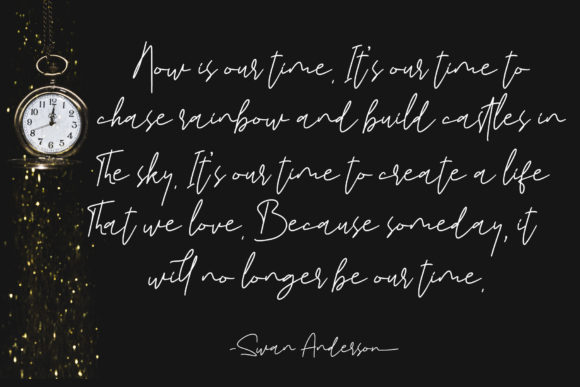 Now is our time. It's our time to
chase rainbow and build castles in
The sky. It's our time to create a life
That we love. Because someday, it
will no longer be our time.
-Swan Anderson
12
1
2
3
4
5
6
7
8
9
10
11